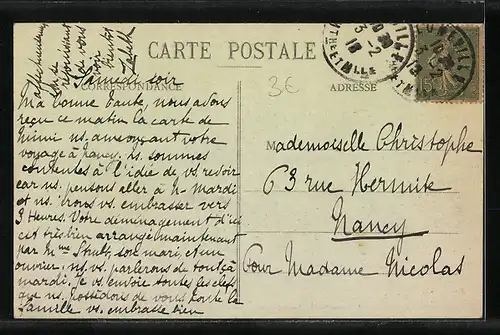 CARTE POSTALE
CORRESPONDANCE
ADRESSE
3€
LUNEVILLE
Samedi soir
Ma bonne tante, nous avons
reçu ce matin la carte de
Mimi ns. annonçant votre
voyage à Nancy. ns. sommes
contentes à l'idée de vs. revoir
car ns. pensons aller à N- mardi
et ns. irons vs. embrasser vers
3 Heures. Votre déménagement d'ici
est très bien arrangé maintenant
par Mme son mari, et un
ouvrier, ns. vs. parlerons de tout ça
mardi. Je vs. envoie toutes les clefs
que ns. possédons de vous toute la
famille vs. embrasse bien
affectueusement
se réjouissant
de vous
voir bientôt
Mademoiselle Christophe
63 rue Hermite
Nancy
Pour Madame Nicolas